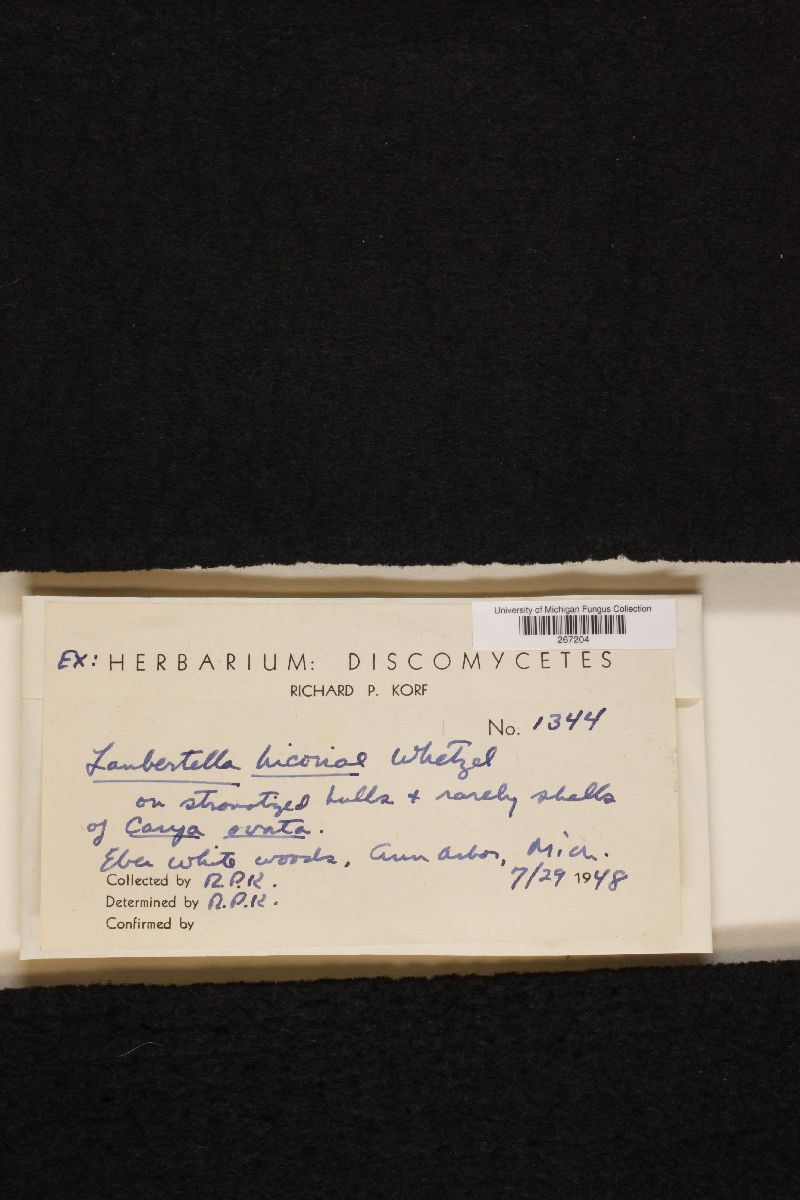 University of Michigan Fungus Collection
267204
EX: HERBARIUM: DISCOMYCETES
RICHARD P. KORF
No. 1344
Lambertella hicoriae Whetzel
on stromatized hulls + rarely shells
of Carya ovata.
Eber white woods, Ann Arbor, Mich.
Collected by R.P.K. 7/29 1948
Determined by R.P.K.
Confirmed by